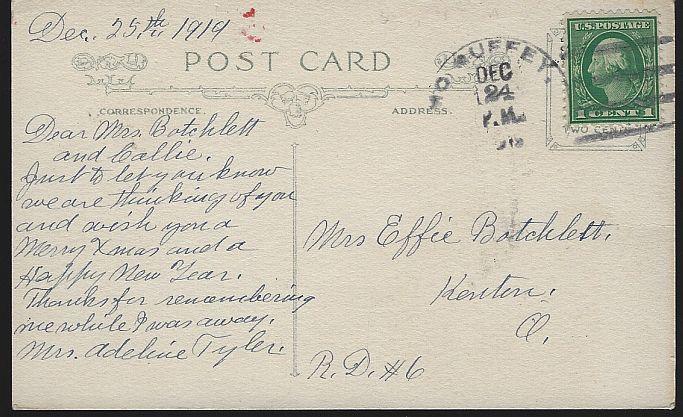 Dec. 25th 1919
POST CARD
CORRESPONDENCE.
ADDRESS.
DEC
24
P.M.
U.S. POSTAGE
1 CENT 1
TWO CENTS
Dear Mrs. Botchlett
and Callie.
Just to let you know
we are thinking of you
and wish you a
Merry Xmas and a
Happy New Year.
Thanks for remembering
me while I was away.
Mrs. Adeline Tyler.
Mrs Effie Botchlett.
Kenton.
O.
R.D. #6